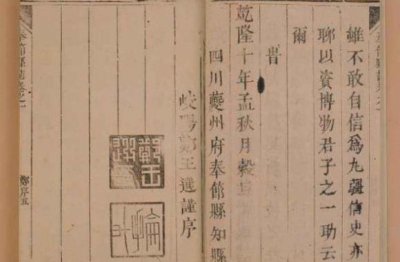 雖不敢自信爲九疆信史亦
聊以資博物君子之一助云
爾
旹
乾隆十年孟秋月穀旦
四川夔州府奉節縣知縣
岐陽鄭王選謹序
鄭序五